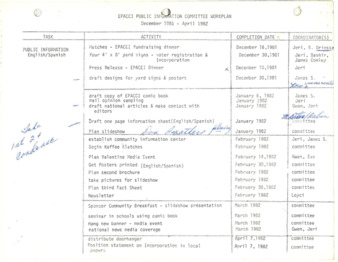 EPACCI PUBLIC INFORMATION COMMITTEE WORKPLAN
December 1981 - April 1982
TASK ACTIVITY COMPLETION DATE COORDINATOR(S)
PUBLIC INFORMATION
English/Spanish
Matches - EPACCI fundraising dinner December 16, 1981 Jeri, H.
Four 4' x 8' yard signs - voter registration & Incorporation December 30, 1981 Jeri, James Conley
Press Release - EPACCI Dinner December 11, 1981 Jeri
draft designs for yard signs & posters December 30, 1981 Jones S.
draft copy of EPACCI comic book January 6, 1982 Jones S.
mail opinion sampling January 1982 Jeri
draft national articles & make contact with editors January 1982 Gwen, Jeri
Draft one page information sheet (English/Spanish) January 1982 committee
Plan slideshow January 1982 committee
establish community information center February 1982 Jeri, Jones S.
Begin Kaffee Klatches February 1982 committee
Plan Valentine Media Event February 14, 1982 Gwen,
Get Posters printed (English/Spanish) February 1982 committee
Plan second brochure February 1982 committee
take pictures for slideshow February 1982 committee
Plan third Fact Sheet February 1982 committee
Newsletter February 1982
Sponsor Community Breakfast - slideshow presentation March 1982 committee
seminar in schools using comic book March 1982 committee
Hang new banner - media event March 1982 committee
national news media coverage March 1982 Gwen, Jeri
distribute doorhanger April 7, 1982 committee
Position statement on incorporation to local April 7, 1982 committee